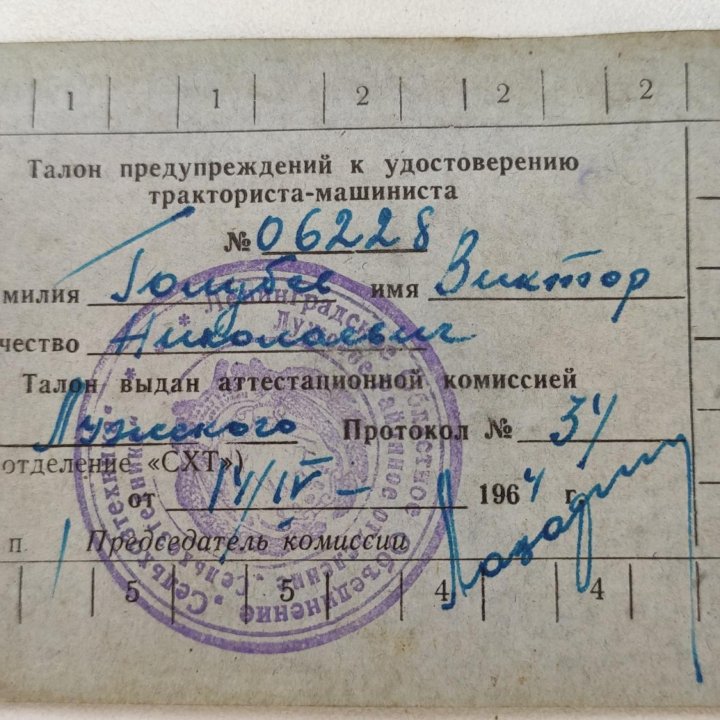 1 1 2 2 2
Талон предупреждений к удостоверению
тракториста-машиниста
№ 06228
милия Голубев имя Виктор
чество Николаевич
Талон выдан аттестационной комиссией
Лужского Протокол № 34
отделение «СХТ»)
от 14/IV – 1964 г.
п. Председатель комиссии
5 5 4 4
* Ленинградское областное объединение "Сельхозтехника" *
Лужское районное отделение "Сельхозтехника"